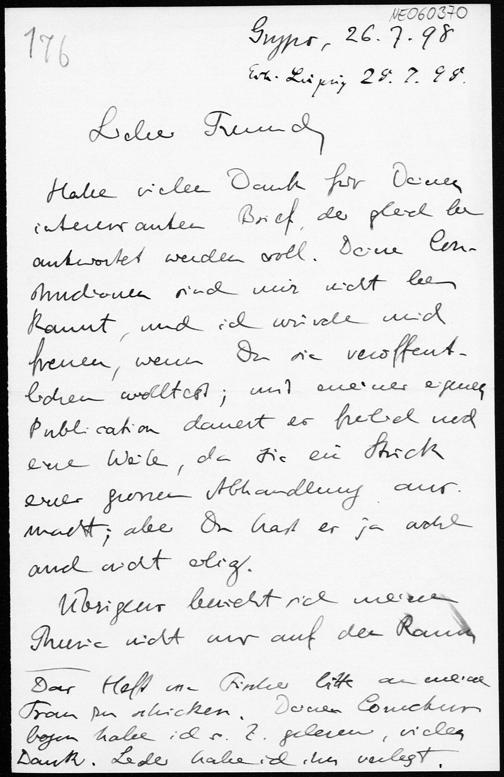 NE060370
176
Gryps, 26.7.98
Erh. Leipzig 28.7.98.
Lieber Freund,
Habe vielen Dank für Deinen
interessanten Brief, der gleich be
antwortet werden soll. Deine Con-
structionen sind mir nicht be
kannt, und ich würde mich
freuen, wenn Du sie veröffent-
lichen wolltest; mit meiner eigenen
Publication dauert es freilich noch
eine Weile, da sie ein Stück
einer grossen Abhandlung aus-
macht; aber Du hast es ja wohl
auch nicht eilig.
Übrigens bezieht sich meine
Theorie nicht nur auf den Raum
Das Heft von Fischer bitte an meine
Frau zu schicken. Deinen
bogen habe ich s. Z. gelesen, vielen
Dank. Leider habe ich ihn verlegt.